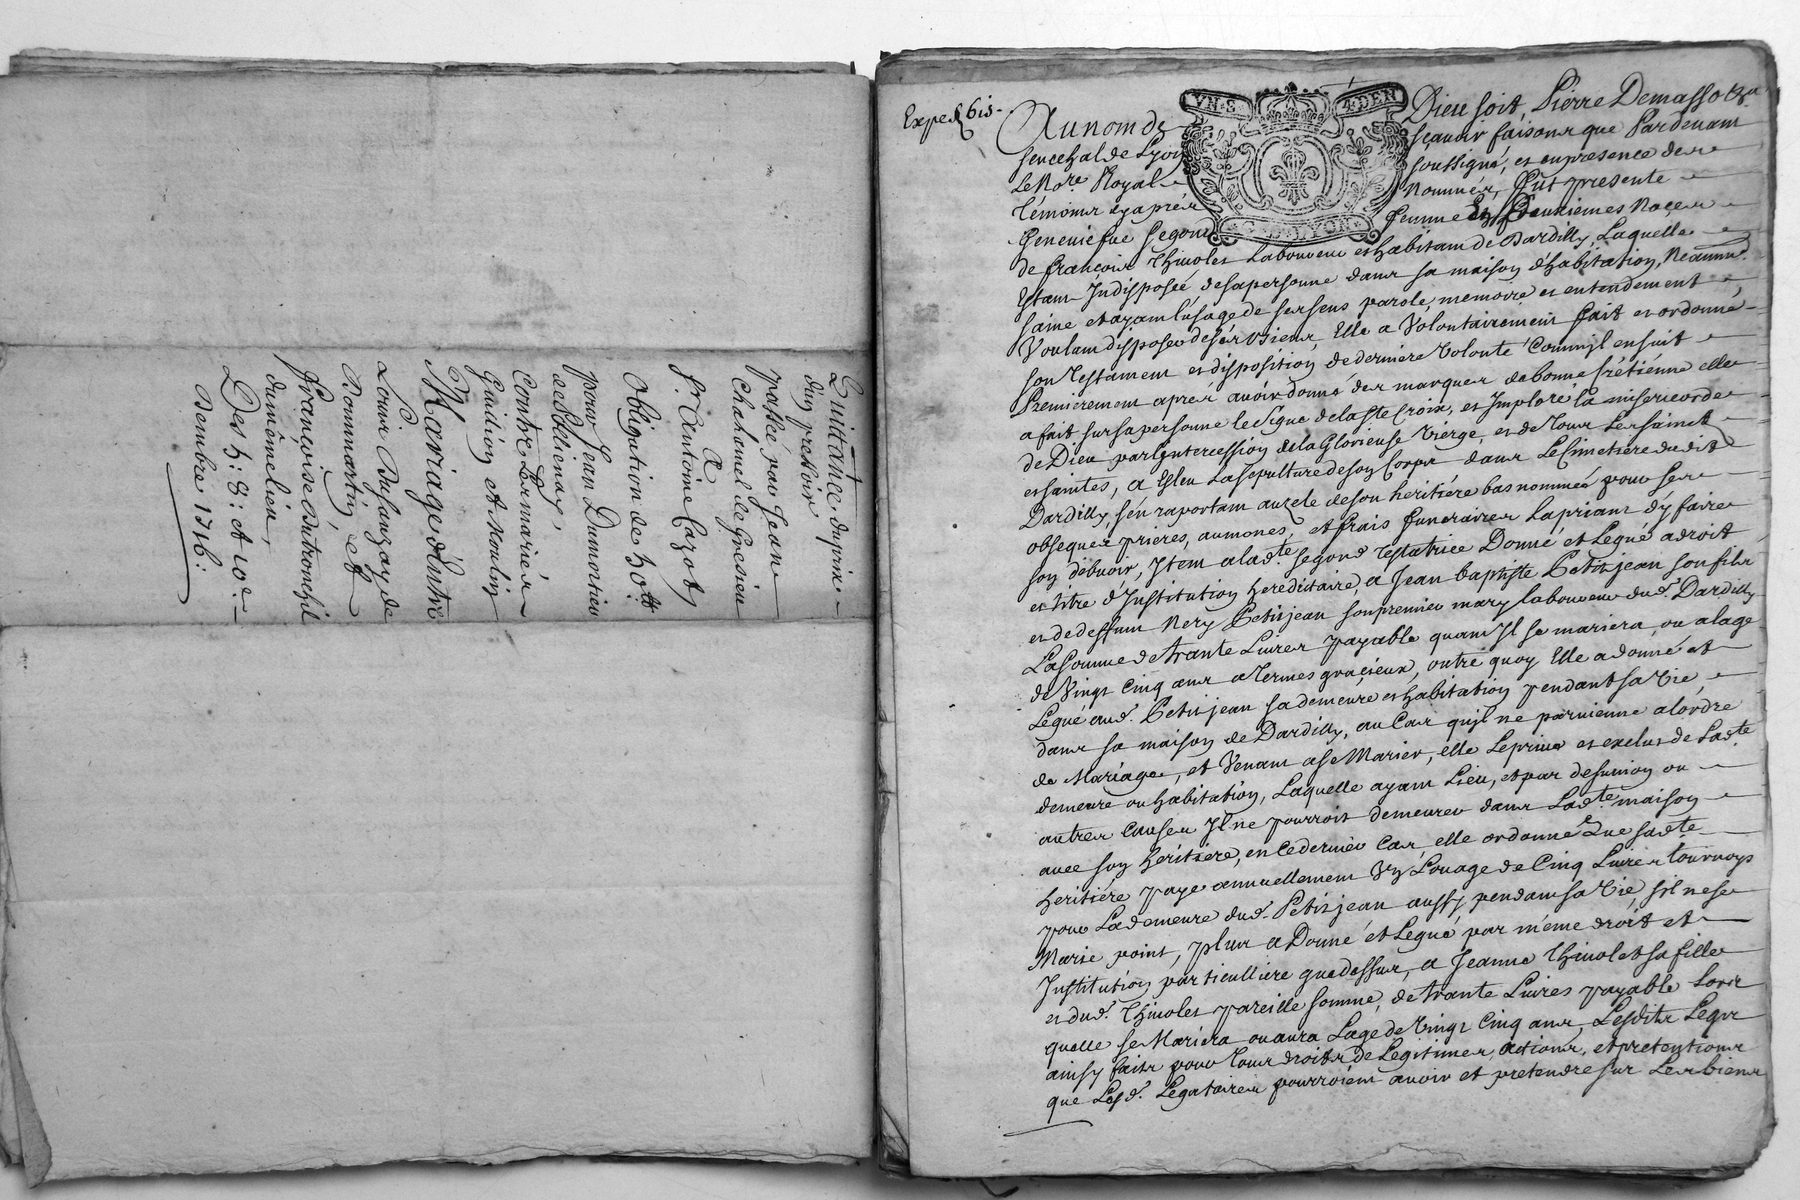 Quittance du prix
d'un prez soit
passée par Jeanne
Chatamel de Grésieu
A
Sr. Antoine Cazot
Obligation de 50tt
pour Jean Dumortier
de Collienay,
Contre Les mariés
Guillon et Moulin
Mariage d'Entre
Louis Dufauzay de
Dommartin, et
Françoise Autroncyfil
du même lieu,
Des 5: 8: et 10e.
Dembre 1716:
Exped. bis
UN S. 4 DEN
G. D. LYON
Au nom de Dieu soit, Pierre Demasso &a
Senechal de Lyon sçavoir faisons que Pardevant
Le Nore Royal soussigné, et en presence des
Témoins cyaprés Nommés, fut presente
Geneviefue Segond femme En deuxiemes Noçes
de François Thivolet Laboureur et habitant de Dardilly, Laquelle
Estant Indisposée de sa personne dans sa maison d'habitation, Neanmt.
saine et ayant l'usage de ses sens parole, memoire et entendement,
Voulant disposer de ses biens, Elle a Volontairement fait et ordonné
son Testament et disposition de derniere Volonté Comm'il ensuit
Premierement aprés avoir donné des marques de bonne Crétiénne elle
a fait sur sa personne le Signe de la Ste Croix, et Imploré la misericorde
de Dieu par l'Intercession de la Glorieuse Vierge, et de Tous Les saincts
et saintes, a Esleu La sepulture de son Corps dans Le Cimetiere dudit
Dardilly, s'en raportant au zele de son heritiére bas nommée pour ses
obseques prieres, aumones, et frais funeraires La priant d'y faire
son debvoir, Item a lade. Segond Testatrice Donné et Legué a droit
et titre d'Institution hereditaire, a Jean baptiste Petitjean son fils
et de deffunt Nery Petitjean son premier mary laboureur dud. Dardilly
La Somme de trante Livres payable quant Il se mariera, ou a lage
de Vingt Cinq ans a Termes gracieux, outre quoy Elle a donné et
Legué aud. Petitjean sa demeure et habitation pendant sa Vie,
dans sa maison de Dardilly, au Cas qu'il ne parvienne a lordre
de Mariage, et Venant a se Marier, elle Le prive et exclut de Lade.
demeure ou habitation, Laquelle ayant Lieu, et par desunion ou
autres Causes Il ne pourroit demeurer dans Lade. maison
avec son heritiere, en Ce dernier Cas, elle ordonne Que sade.
heritiere paye annuellement Un Louage de Cinq Livres tournoys
pour La demeure dud. Petitjean aussy pendant sa Vie, s'il ne se
Marie point, plus a Donné et Legué par méme droit et
Institution particulliere que dessus, a Jeanne Thivolet sa fille
et dud. Thivolet pareille somme, de trante Livres payable Lors
quelle se Mariera ou aura Lage de Vingt Cinq ans, Lesdits Legs
ainsy faits pour Tous droits de Legitimes, actions, et pretentions
que Lesd. Legataires pourroient avoir et pretendre sur Les biens